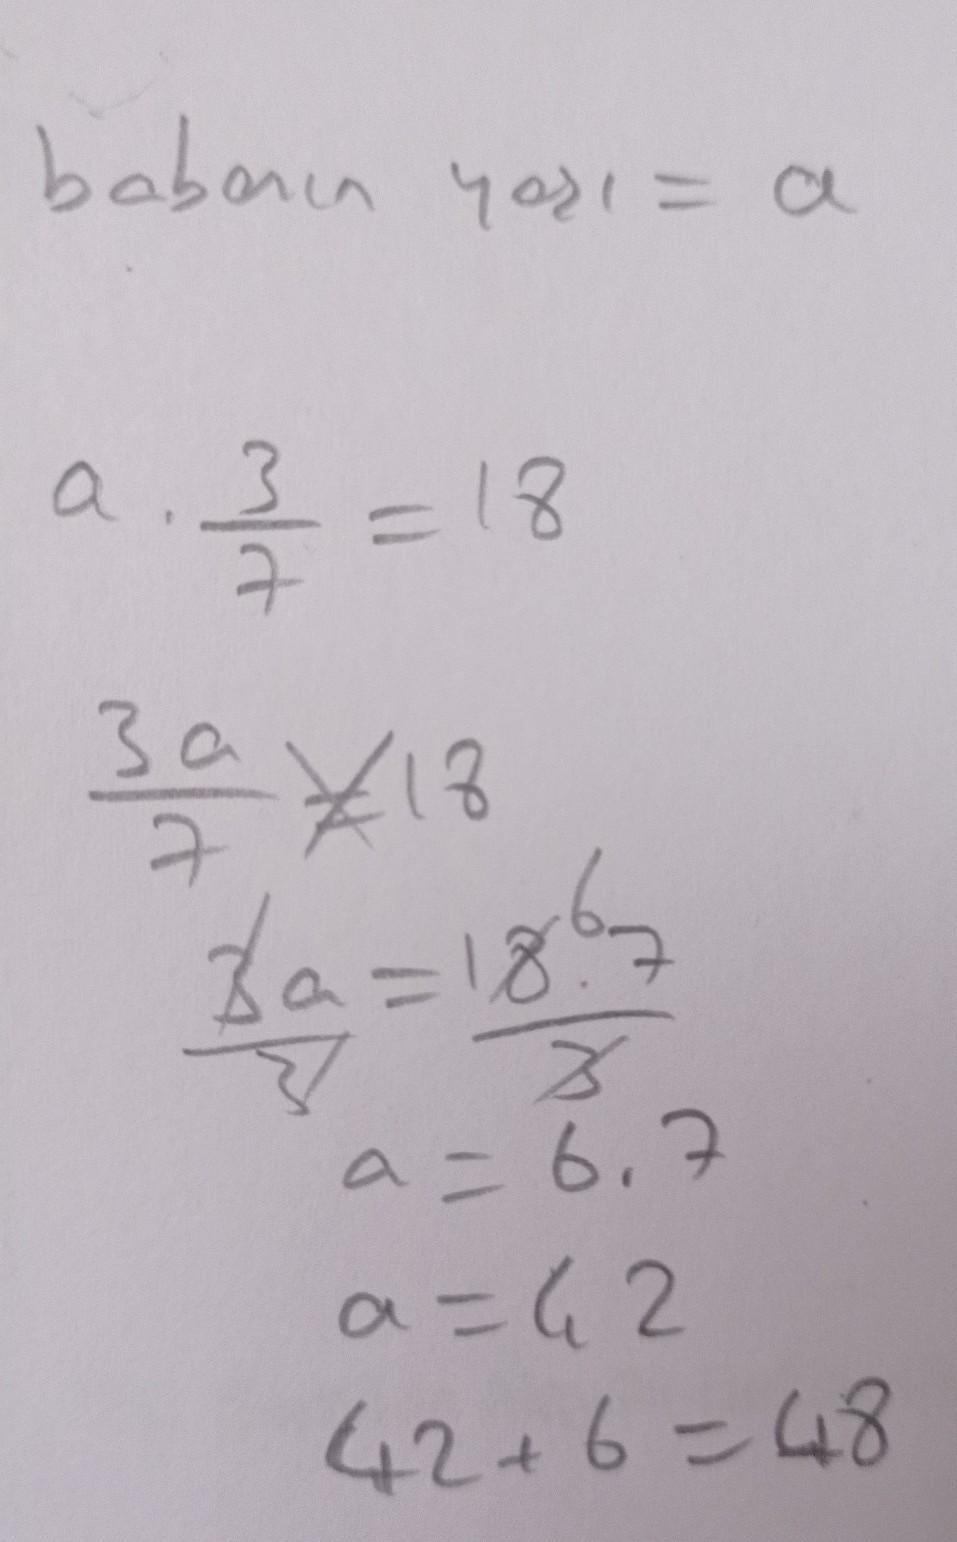 babanın yaşı = a
a . 3/7 = 18
3a/7 = 18
3a/3 = 18.7/3 6
a = 6.7
a = 42
42 + 6 = 48